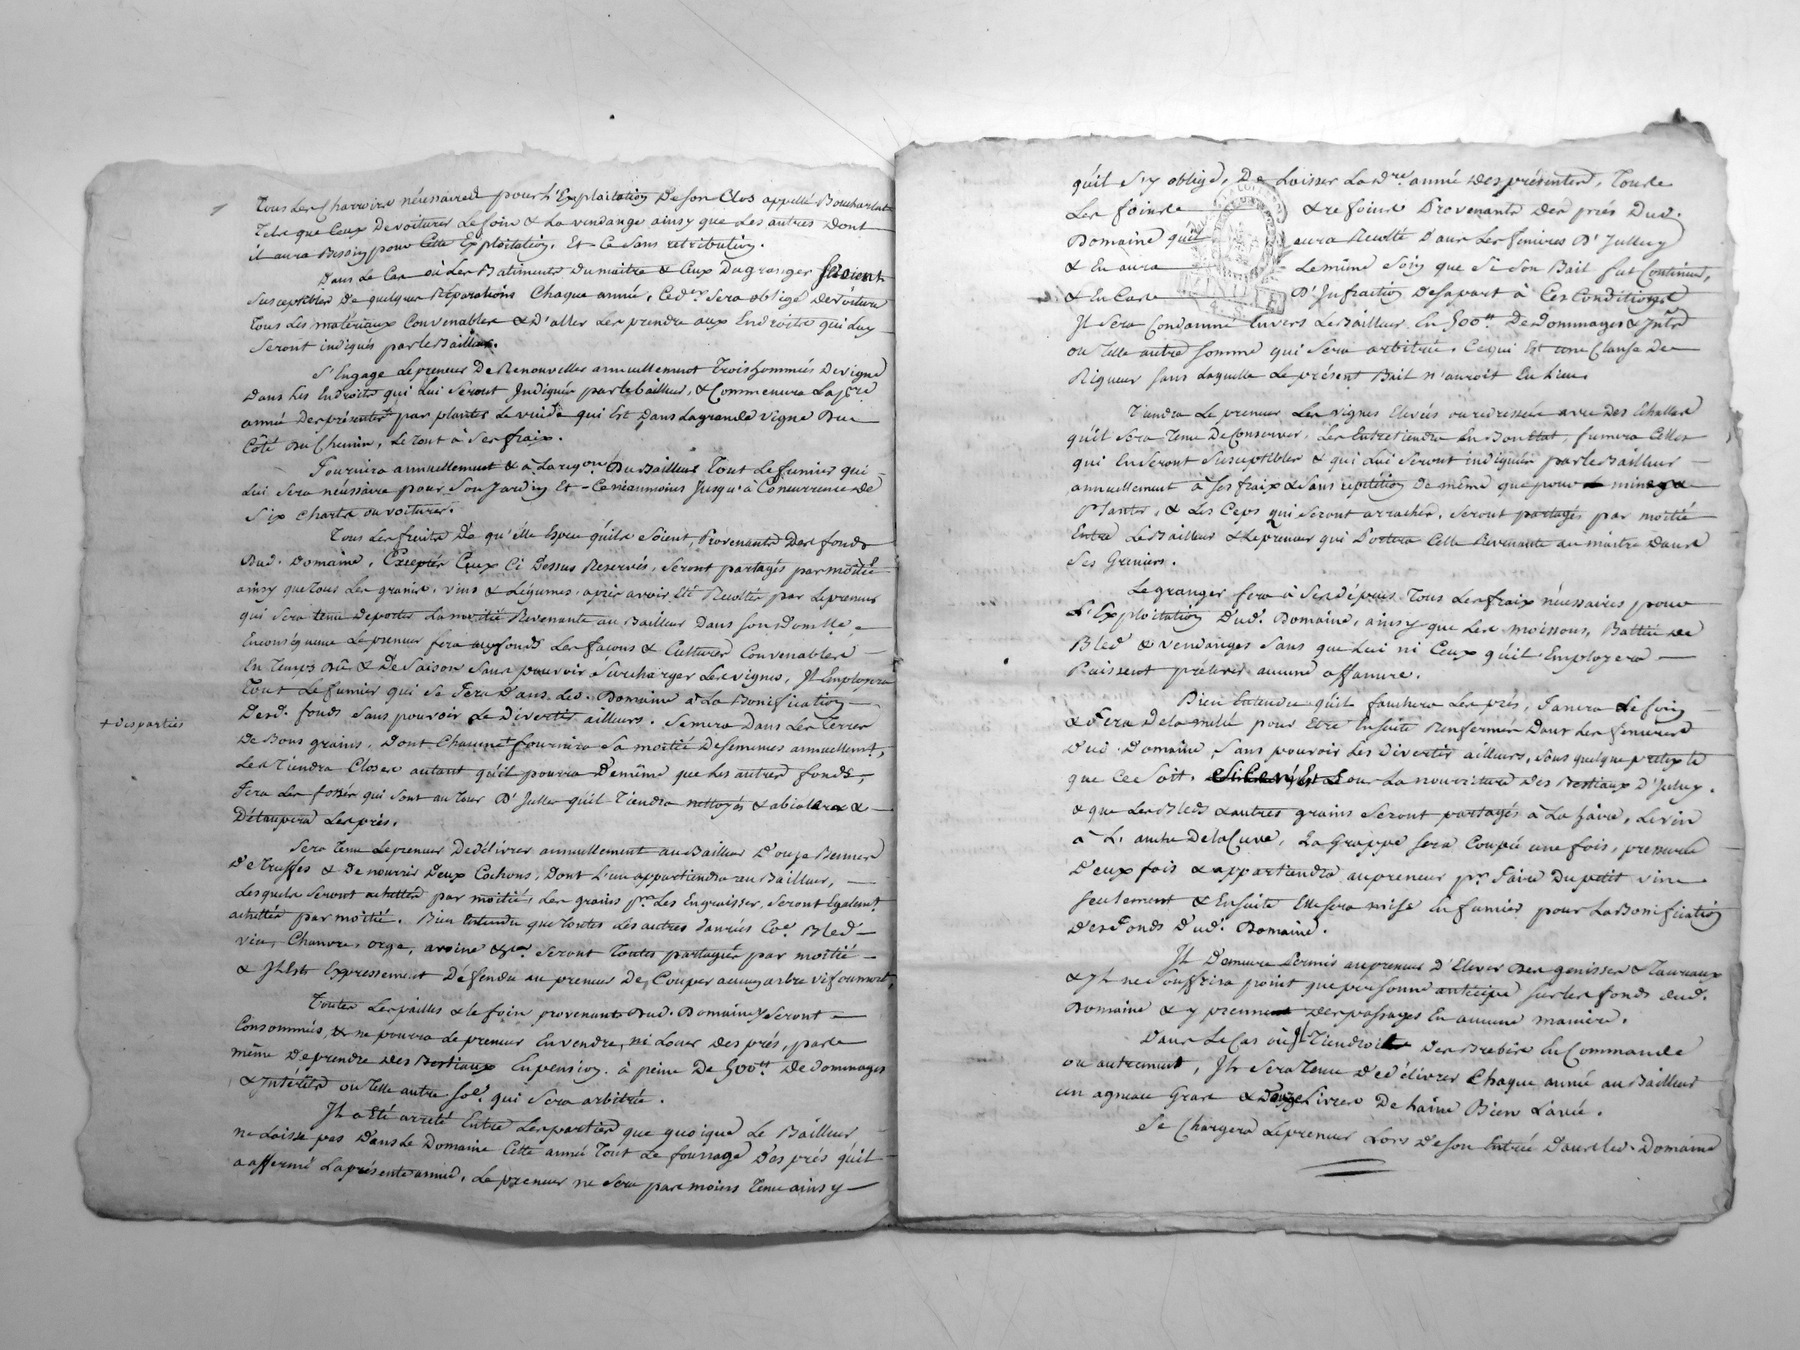 Tous les Charrois nécessaires pour l'Exploitation de son Clos appellé Boucharlat
Tels que Ceux de voiturer le foin & la vendange ainsy que les autres dont
il aura Besoin pour Cette Exploitation, Et Ce sans retribution.
Dans le Cas où les Batiments du maitre & Ceux du granger seroient
susceptibles de quelques Réparations Chaque année, Ced.er sera obligé de voiturer
tous les matériaux Convenables & d'aller les prendre aux Endroits qui luy
seront indiqués par le Bailleur.
S'Engage le preneur de Renouveller annuellement trois hommées de vigne
dans les Endroits qui lui seront Indiqués par le bailleur, & Commencera la p.re
année des présentes par planter le vuide qui Est dans la grande vigne du
Côté du Chemin, le tout à ses fraix.
Fournira annuellement & à la req.on du Bailleur tout le fumier qui
lui sera nécessaire pour son Jardin Et Ce néanmoins Jusqu'à Concurrence de
six chards ou voitures.
Tous les fruits de qu'elle Espece qu'ils soient, Provenants des fonds
dud. Domaine, Exceptés Ceux Ci Dessus Reservés, seront partagés par moitié
ainsy que tous les grains, vins & Légumes, après avoir Eté Recoltés par le preneur
qui sera tenu de porter la moitié Revenante au Bailleur dans son dom.lle,
En conséquence le preneur fera aux fonds les façons & Cultures Convenables
En temps dû & de saison sans pouvoir surcharger les vignes, Il Employera
tout le fumier qui se fera dans led. Domaine à la Bonification
Desd. fonds sans pouvoir le divertir ailleurs. Semera dans les terres
+ des parties
de Bons grains, dont Chacune + fournira sa moitié de semences annuellement,
les tiendra Closes autant qu'il pourra de même que les autres fonds,
fera les fossés qui sont au tour d'Jullu qu'il tiendra nettoyés &
Détaupera les prés.
Sera tenu le preneur de délivrer annuellement au Bailleur d'ouze Bennes
de truffes & de nourrir deux Cochons, dont l'un appartiendra au Bailleur,
lesquels seront achettés par moitié, les grains p.r les Engraisser, seront Egalem.t
achettés par moitié. Bien Entendu que toutes les autres danrées Co.e Bled
vin, Chanvre, orge, avoine &.ra seront toutes partagées par moitié
& Il Est Expressement défendu au preneur de Couper aucun arbre vif ou mort,
Toutes les pailles & le foin provenants dud. Domaine y seront
Consommés, & ne pourra le preneur En vendre, ni louer des prés, pas
même de prendre des Bestiaux En pension, à peine de 500.tt de dommages
& Intérêts ou telle autre so.e qui sera arbitrée.
Il a Eté arrêté Entre les parties que quoique le Bailleur
ne laisse pas dans le Domaine Cette année tout le fourrage des prés qu'il
a affermé la présente année, le preneur ne sera pas moins tenu ainsy
qu'il s'y oblige, De laisser la d.re année des présentes, tous
les foins & refoins Provenants des prés dud.
Domaine qu'il aura Recolté dans les fenieres d'Julluy
& En aura le même soin que si son Bail fut Continué,
& En Cas d'Infraction de sa part à Ces Conditions
Il sera Condamné Envers le Bailleur En 500.tt de dommages & Int.ts
ou telle autre somme qui sera arbitrée, Ce qui Est une Clause de
Rigueur sans laquelle le présent Bail n'auroit Eu lieu.
Tiendra le preneur les vignes Elevées ou redressées avec des Echallas
qu'il sera tenu de Conserver, les Entretiendra En Bon Etat, fumera Celles
qui En seront susceptibles & qui lui seront indiquées par le Bailleur
annuellement à ses fraix & sans répétition de même que pour
Planter, & les Ceps qui seront arrachés, seront partagés par moitié
Entre le Bailleur & le preneur qui Portera Celle Revenante au maitre dans
ses Greniers.
Le granger fera à ses dépens tous les fraix nécessaires pour
l'Exploitation dud. Domaine, ainsy que les moissons, Battue de
Bled & vendanges sans que lui ni Ceux qu'il Employera
Puissent prélever aucune affanure.
Bien Entendu qu'il fauchera les prés, fanera le foin
& fera de la meule pour Etre Ensuite Renfermés dans les fenieres
dud. Domaine, sans pouvoir les divertir ailleurs, sous quelque pretexte
que Ce soit, pour la nourriture des Bestiaux d'Juluy.
& que les Bleds & autres grains seront partagés à la haire, le vin
à L'anche de la Cuve, la Grappe sera Coupée une fois, pressurée
deux fois & appartiendra au preneur p.r faire du petit vin
seulement & Ensuite Elle sera mise En fumier pour la Bonification
des fonds dud. Domaine.
Il demeure Permis au preneur d'Elever des genisses & taureaux
& Il ne souffrira point que personne anticipe sur les fonds dud.
Domaine & y prennent des passages En aucune maniere.
Dans le Cas où Il tiendroit des Brebis En Commande
ou autrement, Il sera tenu de délivrer Chaque année au Bailleur
un agneau Gras & Douze Livres de haine Bien Lavée.
Se Chargera le preneur Lors de son Entrée dans led. Domaine